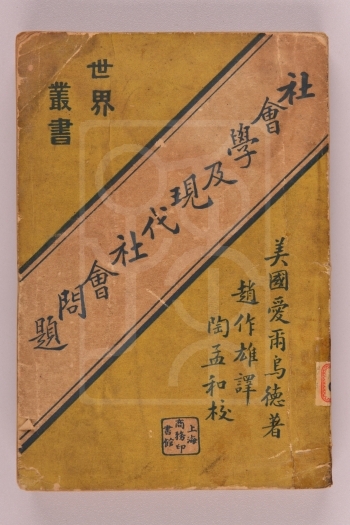 世界
叢書
社會學及現代社會問題
美國愛爾烏德著
趙作雄譯
陶孟和校
上海
商務印
書館